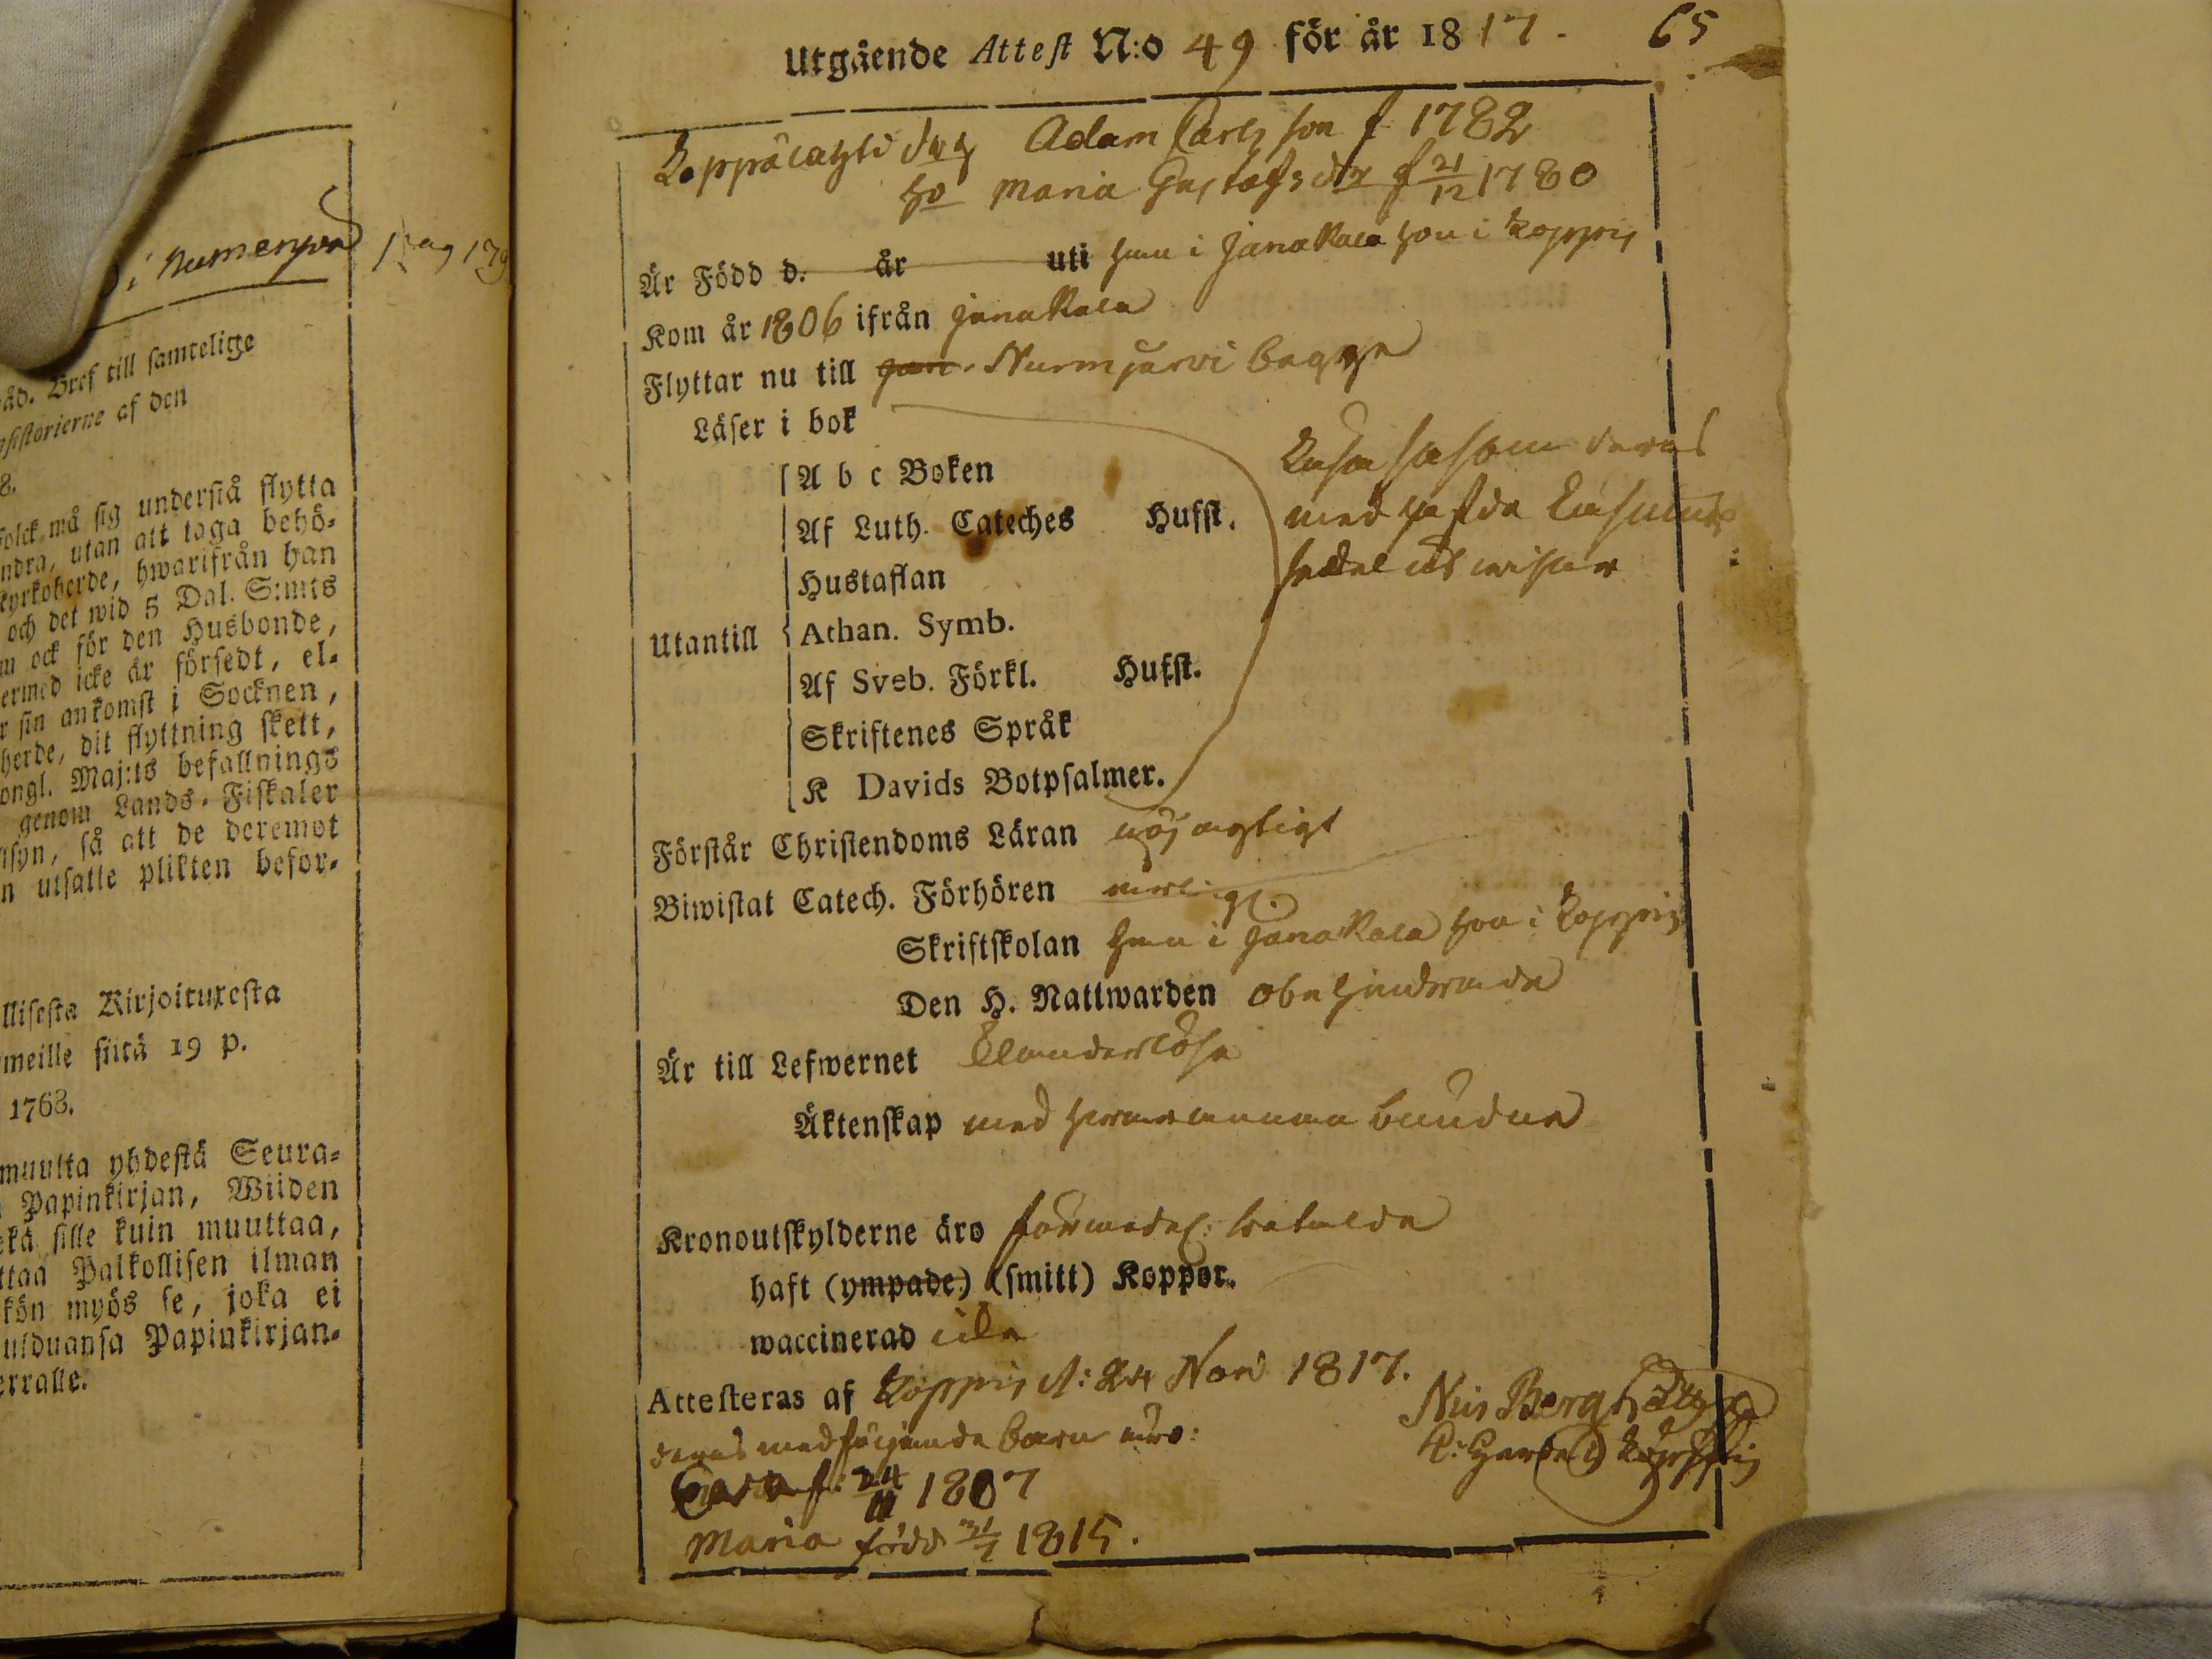 i Numenpää
åd. Bref till samtelige
nsistorierne af den
8.
folck må sig understå flytta
ndra, utan att taga behö-
kyrkoherde, hwarifrån han
och det wid 5 Dal. S:mts
m ock för den Husbonde,
ermed icke är försedt, el-
r sin ankomst i Socknen,
herde, dit flyttning skett,
ongl. Maj:ts befallnings
genom Lands-Fiskaler
lsyn, så att de deremot
n utsatte plikten befor-
llisesta Kirjoituxesta
meille siitä 19 p.
1763.
muutta yhdestä Seura-
Papinkirjan, Wiiden
ekä sille kuin muuttaa,
ttaa Palkollisen ilman
kön myös se, joka ei
ulduansa Papinkirjan-
erralle.
65
Utgående Attest N:o 49 för år 1817.
Adam Carlsson f 1782
ho Maria Gustafsdr f 21/12 1780
Är Född d. år uti han i Janakala hon i Koppis
Kom år 1806 ifrån Janakala
Flyttar nu till Nurmijärvi begge
Läser i bok
A b c Boken
Af Luth. Cateches Hufst.
Hustaflan
Utantill Athan. Symb.
Af Sveb. Förkl. Hufst.
Skriftenes Språk
K Davids Botpsalmer.
läsa såsom deras
med hafda läsnings
sedel utwisar
Förstår Christendoms Läran nöjagtigt
Biwistat Catech. Förhören årligt.
Skriftskolan han i Janakala hon i Koppis
Den H. Nattwarden obehindrade
Är till Lefwernet klanderlösa
Äktenskap med hwarannan bundne
Kronoutskylderne äro förmedel: betalde
haft (ympade) (smitt) Koppor.
waccinerad icke
Attesteras af Koppis d: 24 Nov 1817.
deras medföljande barn äro:
f: 24/11 1807
Maria född 31/7 1815.